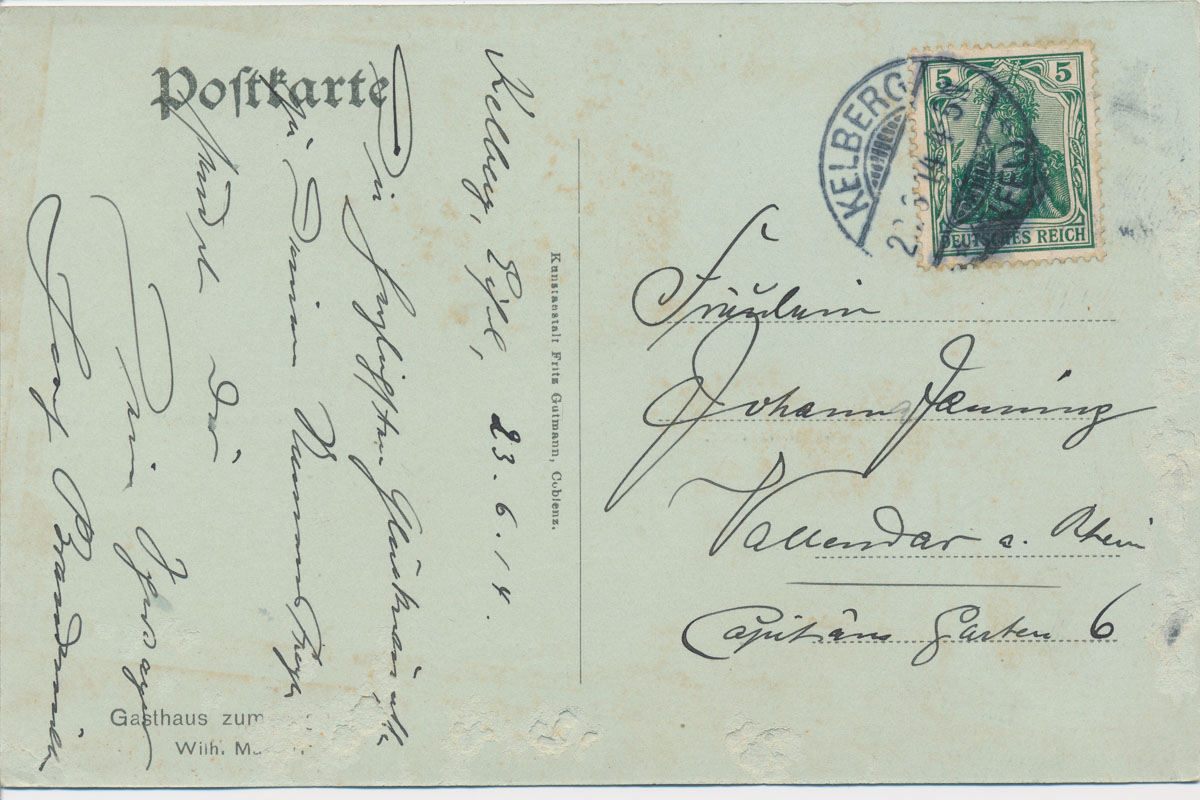 Postkarte
Kelberg, Eifel, 23.6.14.
Die herzlichsten Glückwünsche
zu Deinem Namens
sendet Dir
Dein
Gasthaus zum
Wilh.
Kunstanstalt Fritz Gutmann, Coblenz.
KELBERG
14 4-5N
5 5
DEUTSCHES REICH
Fräulein
Johanna
Vallendar a. Rhein
Capitäns Garten 6